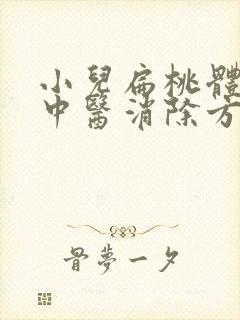 小兒扁桃體
中醫消除方
骨夢一夕